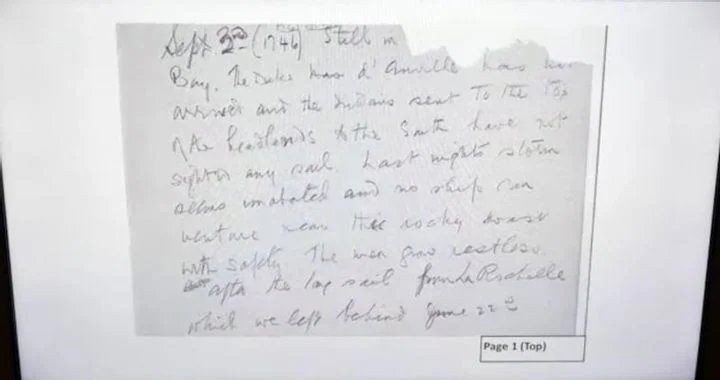 Sept. 3rd (1746) Still in
Bay. The Duke d'Anville has
arrived and the Indians sent to the top
of the headlands to the South have not
sighted any sail. Last nights storm
seems unabated and no ship can
venture near this rocky coast
with safety. The men grow restless
after the long sail from La Rochelle
which we left behind June 22nd
Page 1 (Top)